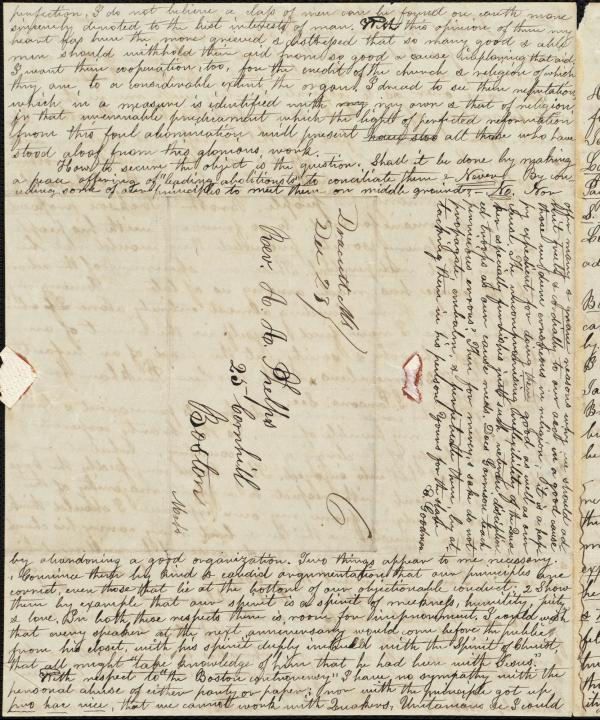 perfection, I do not believe a class of men can be found on earth more
sincerely devoted to the best interests of man. With this opinion of them my
heart has been the more grieved & distressed that so many good & able
men should withhold their aid from so good a cause & deploring that aid.
I want their cooperation, too, for the credit of the church & religion of which
they are to a considerable extent the organs. I dread to see their reputation
which in a measure is identified with my own & that of religion
in that unenviable predicament which the light of perfected reformation
from this foul abomination will present all those who have
stood aloof from this glorious work.
How to secure the object is the question. Shall it be done by making
a peace offering of "leading abolitionists" to conciliate them? Never! By con
ceding some of our principles to meet them on middle ground? No. Nor
by abandoning a good organization. Two things appear to me necessary.
1 Convince them by kind & candid argumentation that our principles are
correct, even those that lie at the bottom of our objectionable conduct; 2 Show
them by example that our spirit is a spirit of meekness, humility, pity
& love. In both these respects there is room for improvement. I could wish
that every speaker at the next anniversary would come before the public
from his closet, with his spirit deeply imbued with the Spirit of Christ,
that all might "take knowledge of him that he had been with Jesus."
With respect to "the Boston controversy" I have no sympathy with the
personal abuse of either party or paper; nor with the principle got up
that we cannot work with Quakers, Unitarians &c I could
offer many & grave reasons why we should not
that fruits cordially to our aid in a good cause
those we deem erroneous in religion. It is a hap
py expedient for doing them good as well as our
cause. The uncompromising inflexibility of the Quak
ers especially furnishes just such veteran disciplin
ed troops as our cause needs. Does Garrison teach
pernicious errors? Then for mercy's sake do not
propagate, embalm, & perpetuate them, by at
tacking them in his person. Yours for the slave
E Goodman
Dracutt Ms
Dec 28
6
Rev. A. A. Phelps
25 Cornhill
Boston
Mass